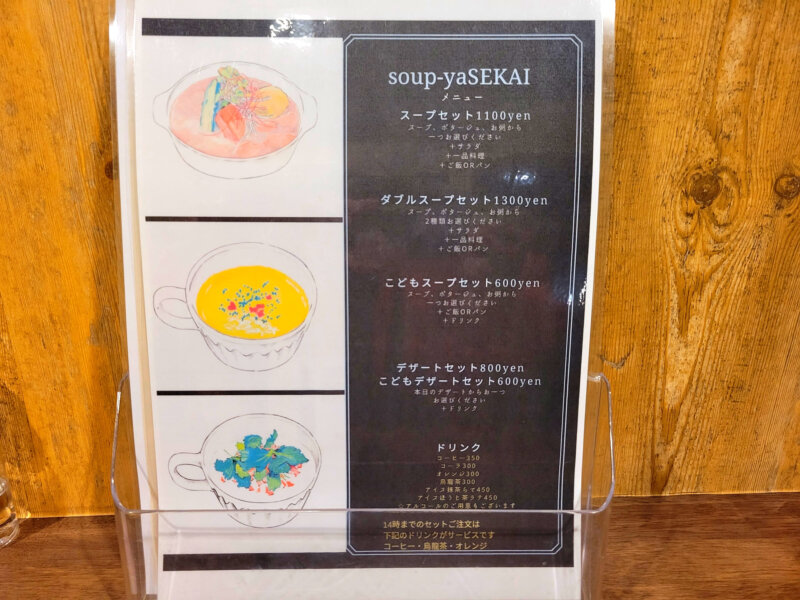 soup-yaSEKAI
メニュー
スープセット1100yen
スープ、ポタージュ、お粥から
一つお選びください
＋サラダ
＋一品料理
＋ご飯ORパン
ダブルスープセット1300yen
スープ、ポタージュ、お粥から
2種類お選びください
＋サラダ
＋一品料理
＋ご飯ORパン
こどもスープセット600yen
スープ、ポタージュ、お粥から
一つお選びください
＋ご飯ORパン
＋ドリンク
デザートセット800yen
こどもデザートセット600yen
本日のデザートからお一つ
お選びください
＋ドリンク
ドリンク
コーヒー350
コーラ300
オレンジ300
烏龍茶300
アイス抹茶らて450
アイスほうじ茶ラテ450
アルコールのご用意もございます
14時までのセットご注文は
下記のドリンクがサービスです
コーヒー・烏龍茶・オレンジ